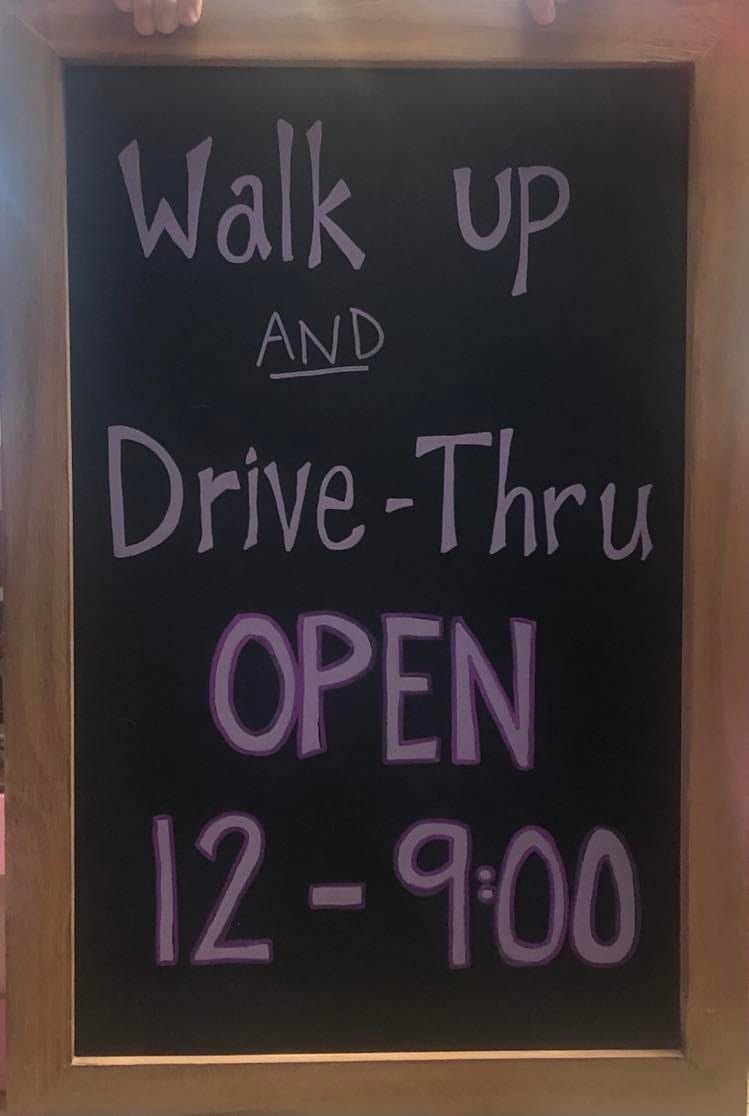 Walk up
AND
Drive-Thru
OPEN
12-9:00